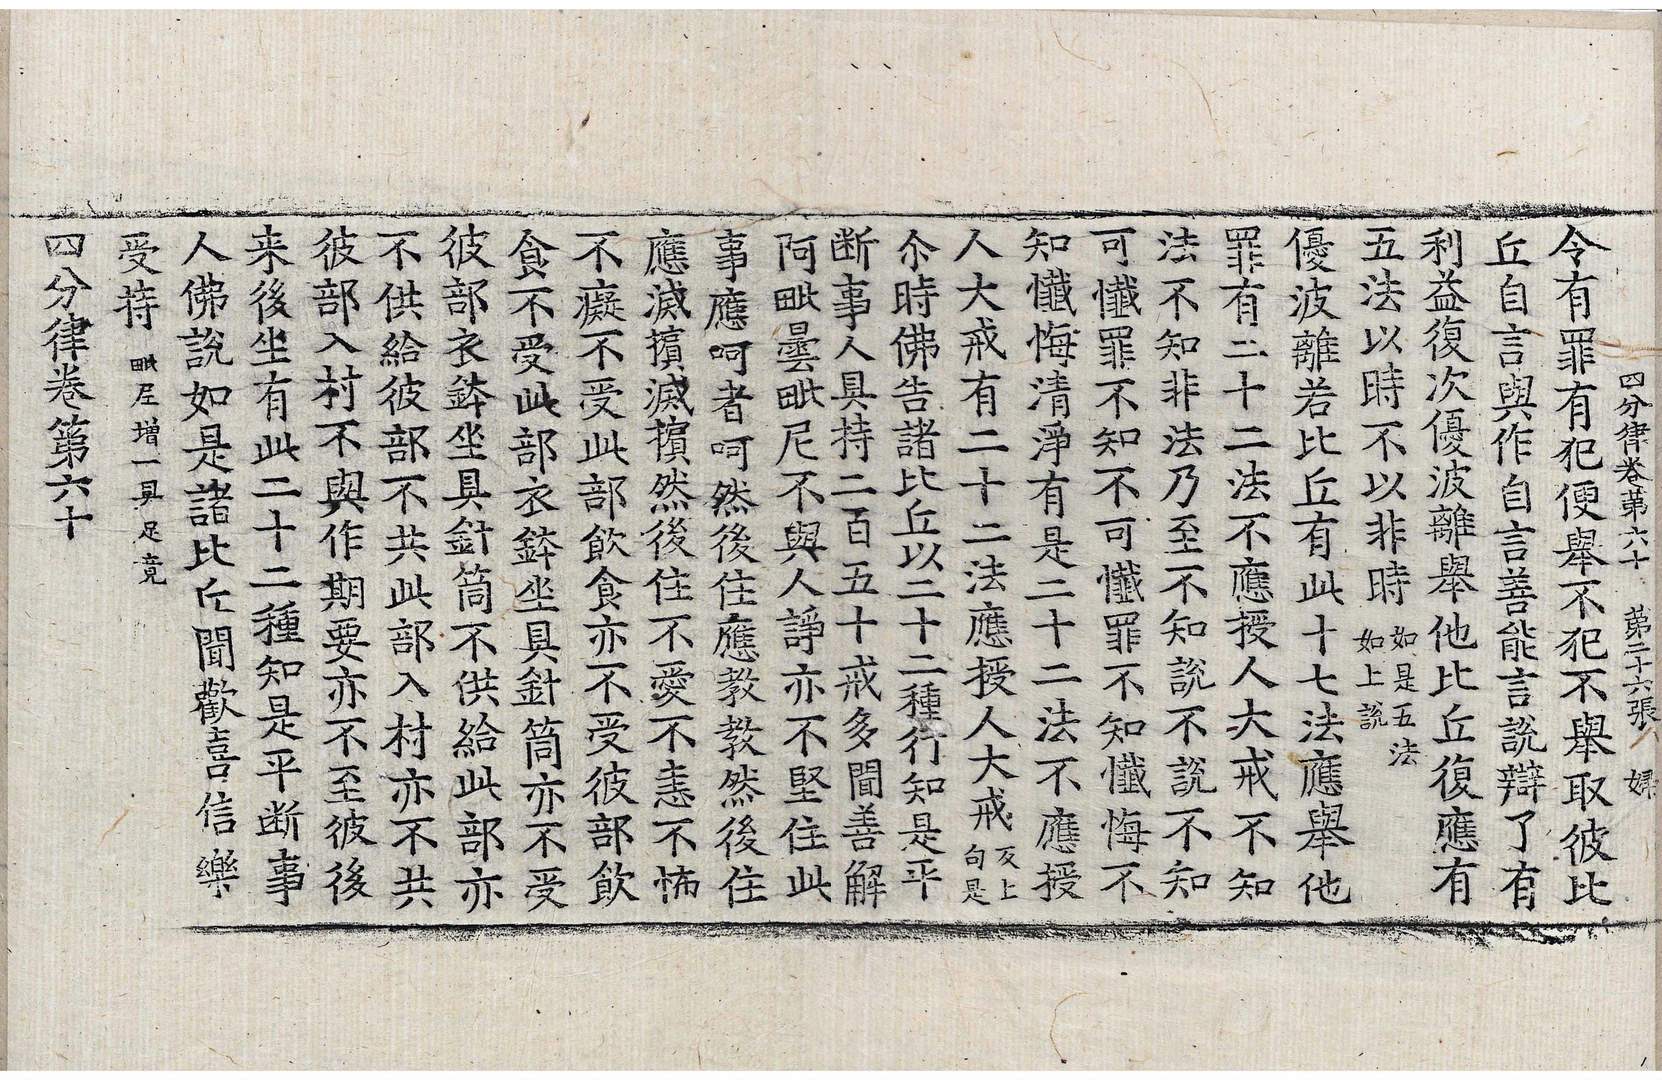 四分律卷第六十 第二十六張 婦
令有罪有犯便舉不犯不舉取彼比
丘自言與作自言善能言說辯了有
利益復次優波離舉他比丘復應有
五法以時不以非時如是五法如上說
優波離若比丘有此十七法應舉他
罪有二十二法不應授人大戒不知
法不知非法乃至不知說不說不知
可懺罪不知不可懺罪不知懺悔不
知懺悔清淨有是二十二法不應授
人大戒有二十二法應授人大戒反上句是
尒時佛告諸比丘以二十二種行知是平
断事人具持二百五十戒多聞善解
阿毗曇毗尼不與人諍亦不堅住此
事應呵者呵然後住應教教然後住
應滅擯滅擯然後住不愛不恚不怖
不癡不受此部飲食亦不受彼部飲
食不受此部衣鉢坐具針筒亦不受
彼部衣鉢坐具針筒不供給此部亦
不供給彼部不共此部入村亦不共
彼部入村不與作期要亦不至彼後
来後坐有此二十二種知是平断事
人佛說如是諸比丘聞歡喜信樂
受持毗尼增一具足竟
四分律卷第六十